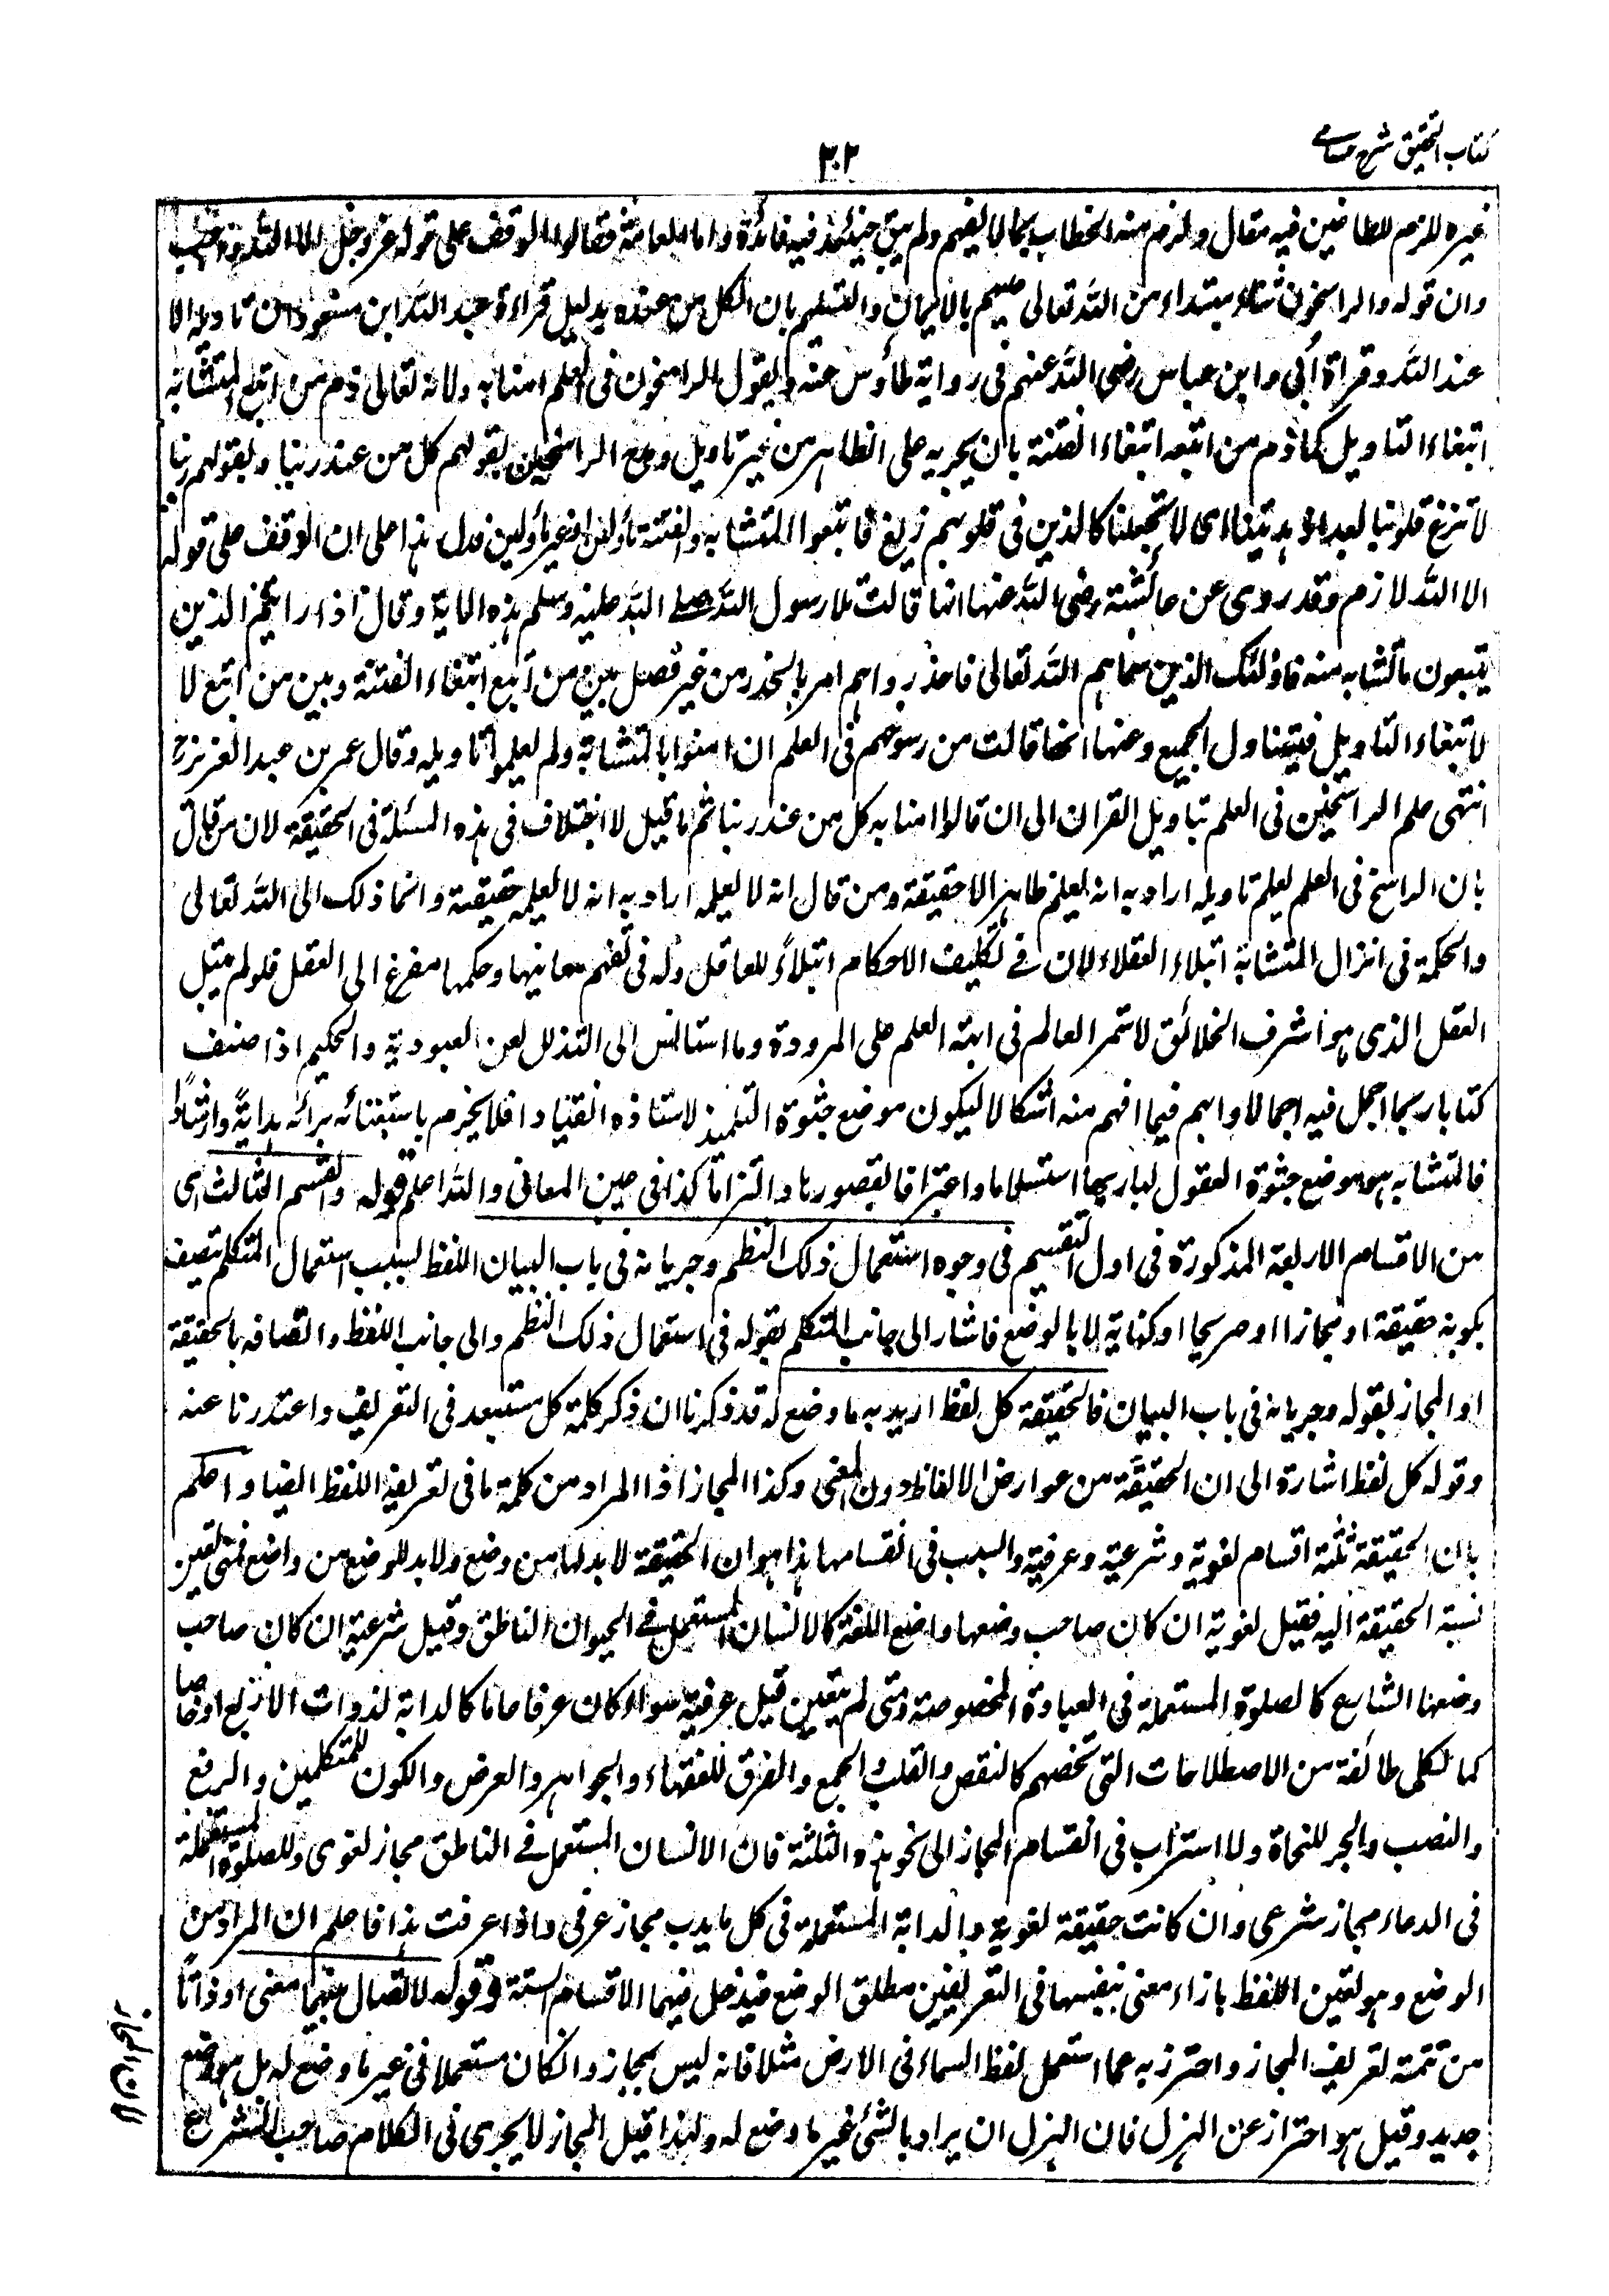 كتاب التحقيق شرح حسامي
٣٠٢
غيره للزم للطاعنين فيه مقال ولزم منه الخطاب بما لا يفهم ولم يبق حينئذ فيه فائدة واما العامة فقالوا الوقف على قوله عز وجل الا الله واجب
وان قوله والراسخون ثناء مبتداء من الله تعالى عليهم بالايمان والتسليم بان الكل من عنده بدليل قراءة عبد الله ابن مسعود ان تاويله الا
عند الله وقراءة أبي وابن عباس رضي الله عنهم في رواية طاؤس عنه ويقول الراسخون في العلم امنا به ولانه تعالى ذم من اتبع المتشابه
ابتغاء التاويل كما ذم من اتبعه ابتغاء الفتنة بان يجريه على الظاهر من غير تاويل ومدح الراسخين بقولهم كل من عند ربنا وبقولهم ربنا
لا تزغ قلوبنا بعد اذ هديتنا اى لا تجعلنا كالذين في قلوبهم زيغ فاتبعوا المتشابه والفتنة مأولين او غير مأولين فدل هذا على ان الوقف على قوله
الا الله لازم وقد روى عن عائشة رضي الله عنها انها قالت تلا رسول الله صلى الله عليه وسلم هذه الاية وقال اذا رايتم الذين
يتبعون ما تشابه منه فاولئك الذين سماهم الله تعالى فاحذروهم امر بالحذر من غير فصل بين من اتبع ابتغاء الفتنة وبين من اتبع لا
لابتغاء التاويل فيتناول الجميع وعنها انها قالت من رسوخهم في العلم ان امنوا بالمتشابه ولم يعلموا تاويله وقال عمر بن عبد العزيز رح
انتهى علم الراسخين في العلم بتاويل القران الى ان قالوا امنا به كل من عند ربنا ثم ما قيل لا اختلاف في هذه المسئلة في الحقيقة لان من قال
بان الراسخ في العلم يعلم تاويله اراد به انه يعلم ظاهرا لا حقيقة ومن قال انه لا يعلمه اراد به انه لا يعلمه حقيقة وانما ذلك الى الله تعالى
والحكمة في انزال المتشابه ابتلاء العقلاء لان في تكليف الاحكام ابتلاءً للعاقل وله في تفهم معانيها وحكمها مفرغ الى العقل فلو لم يبتل
العقل الذي هو اشرف الخلائق لاستمر العالم في ابهة العلم على المرودة وما استانس الى التذلل لعز العبودية والحكيم اذا صنف
كتابا ربما اجمل فيه اجمالا وابهم فيما افهم منه اشكالا ليكون موضع جثوة التلميذ لاستاذه انقيادا فلا يخرم باستغنائه برائه هدايةً وارشادا
فالمتشابه هو موضع جثوة العقول لباريها استسلاما واعترافا بقصورها والتزاما كذا في عين المعاني والله اعلم قوله والقسم الثالث اى
من الاقسام الاربعة المذكورة في اول التقسيم في وجوه استعمال ذلك النظم وجريانه في باب البيان اللفظ بسبب استعمال المتكلم يتصف
بكونه حقيقة او مجازا او صريحا او كناية لا بالوضع فاشار الى جانب المتكلم بقوله في استعمال ذلك النظم والى جانب اللفظ واتصافه بالحقيقة
او المجاز بقوله وجريانه في باب البيان فالحقيقة كل لفظ اريد به ما وضع له قد ذكرنا ان ذكر كلمة كل مستبعد في التعريف واعتذرنا عنه
وقوله كل لفظ اشارة الى ان الحقيقة من عوارض الالفاظ دون المعنى وكذا المجاز اذا المراد من كلمة ما في تعريفه اللفظ ايضا واعلم
بان الحقيقة ثلثة اقسام لغوية وشرعية وعرفية والسبب في انقسامها هذا هو ان الحقيقة لا بد لها من وضع ولا بد للوضع من واضع فمتى تعين
نسبة الحقيقة اليه فقيل لغوية ان كان صاحب وضعها واضع اللغة كالانسان المستعمل في الحيوان الناطق وقيل شرعية ان كان صاحب
وضعها الشارع كالصلوة المستعملة في العبادة المخصوصة ومتى لم يتعين قيل عرفية سواء كان عرفا عاما كالدابة لذوات الاربع او خاصا
كما لكل طائفة من الاصطلاحات التي تخصهم كالنقض والقلب والجمع والفرق للفقهاء والجواهر والعرض والكون للمتكلمين والرفع
والنصب والجر للنحاة ولا استراب في انقسام المجاز الى نحو هذه الثلثة فان الانسان المستعمل في الناطق مجاز لغوى والصلوة المستعملة
في الدعاء مجاز شرعى وان كانت حقيقة لغوية والدابة المستعملة في كل ما يدب مجاز عرفى واذا عرفت هذا فاعلم ان المراد من
الوضع وهو تعين اللفظ بازاء معنى بنفسها في التعريفين مطلق الوضع فيدخل فيهما الاقسام الستة وقوله لاتصال بينهما معنى او ذاتا
من تتمة تعريف المجاز واحترز به عما استعمل لفظ السماء في الارض مثلا فانه ليس بمجاز وان كان مستعملا في غير ما وضع له بل هو وضع
جديد وقيل هو احتراز عن الهزل فان الهزل ان يراد بالشئ غير ما وضع له ولهذا قيل المجاز لا يجرى في الكلام صاحب الشرع